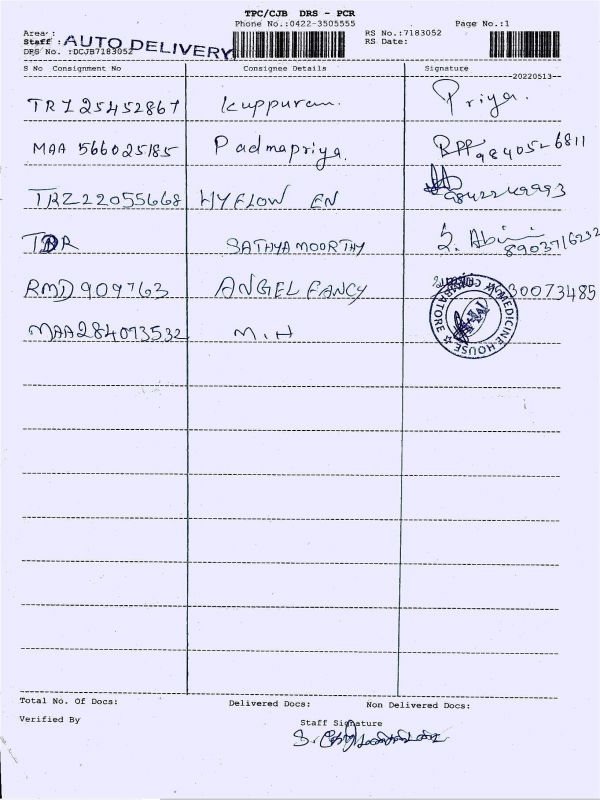 TPC/CJB DRS - PCR
Phone No.:0422-3505555 Page No.:1
Area : RS No.:7183052
Staff : AUTO DELIVERY RS Date:
DRS No. :DCJB7183052
S No Consignment No Consignee Details Signature
20220513
TRZ25452867 Kuppuram. Priya.
MAA 566025185 Padmapriya. 9840526811
TRZ22055668 HYFLOW EN
SATHYAMOORTHY S. Abi 8903716232
RMD909763 ANGEL FANCY 30073485
MAA284093532 M.H MEDICINE HOUSE
Total No. Of Docs: Delivered Docs: Non Delivered Docs:
Verified By Staff Signature